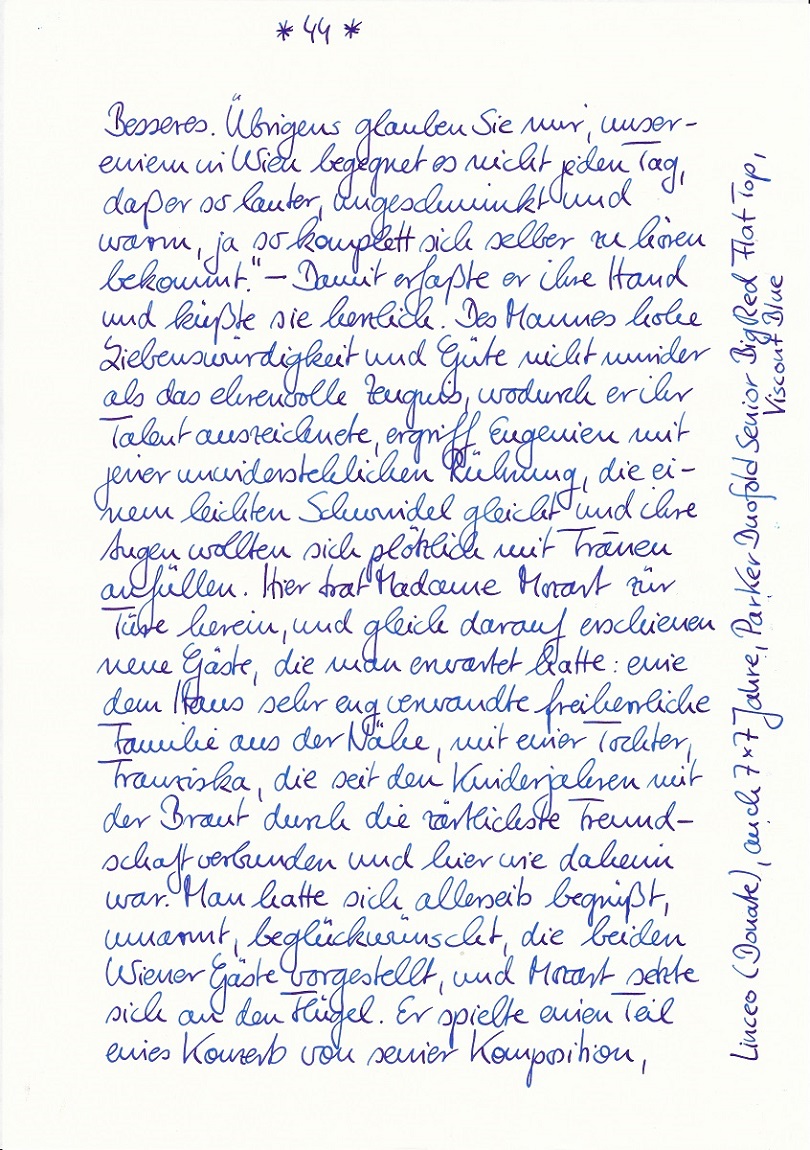 * 44 *
Besseres. Übrigens glauben Sie mir, unser-
einem in Wien begegnet es nicht jeden Tag,
daß er so lauter, ungeschminkt und
warm, ja so komplett sich selber zu hören
bekommt." – Damit erfaßte er ihre Hand
und küßte sie herzlich. Des Mannes hohe
Liebenswürdigkeit und Güte nicht minder
als das ehrenvolle Zeugnis, wodurch er ihr
Talent auszeichnete, ergriff Eugenien mit
jener unwiderstehlichen Rührung, die ei-
nem leichten Schwindel gleicht und ihre
Augen wollten sich plötzlich mit Tränen
anfüllen. Hier trat Madame Mozart zür
Türe herein, und gleich darauf erschienen
neue Gäste, die man erwartet hatte: eine
dem Haus sehr eng verwandte freiherrliche
Familie aus der Nähe, mit einer Tochter,
Franziska, die seit den Kinderjahren mit
der Braut durch die zärtlichste Freund-
schaft verbunden und hier wie daheim
war. Man hatte sich allerseits begrüßt,
umarmt, beglückwünscht, die beiden
Wiener Gäste vorgestellt, und Mozart setzte
sich an den Flügel. Er spielte einen Teil
eines Konzerts von seiner Komposition,
Linceo (Donate), auch 7×7 Jahre, Parker Duofold Senior Big Red Flat Top,
Viscont Blue